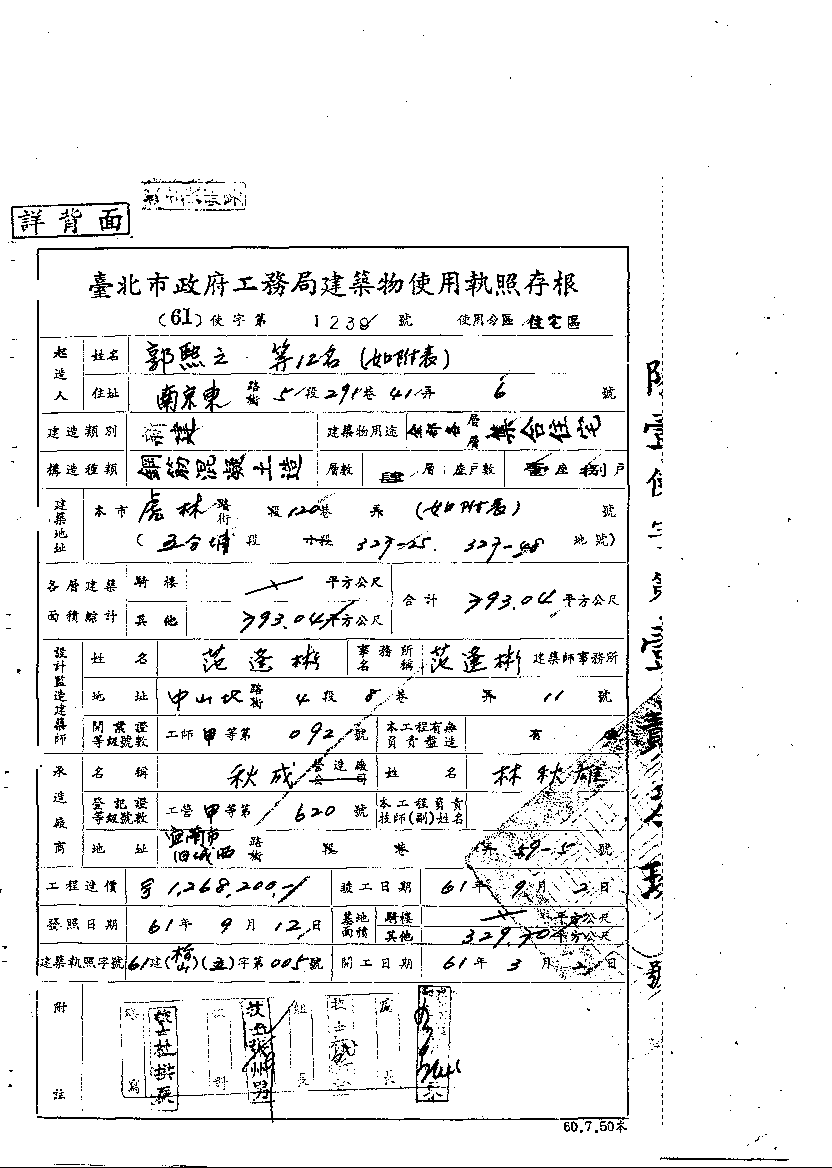 詳背面
臺北市政府工務局建築物使用執照存根
(61)使字第 1239 號 使用分區 住宅區
起造人 姓名 郭熙之 等12名(如附表)
住址 南京東 路街 5 段 291 巷 41 弄 6 號
建造類別 新建 建築物用途 全部各層 集合住宅
構造種類 鋼筋混凝土造 層數 肆 層 座戶數 壹 座 捌 戶
建築地址 本市 虎林 路街 段 120 巷 弄 (如附表) 號
(五分埔 段 小段 327-25. 327-48 地號)
各層建築面積綜計 騎樓 平方公尺 合計 793.04 平方公尺
其他 793.04 平方公尺
設計監造建築師 姓名 范逢彬 事務所名稱 范逢彬 建築師事務所
地址 中山北 路街 4 段 8 巷 弄 11 號
開業證等級號數 工師 甲 等第 092 號 本工程有無負責監造 有
承造廠商 名稱 秋成 營造廠公司 姓名 林秋雄
登記證等級號數 工營 甲 等第 620 號 本工程負責技師(副)姓名
地址 宜蘭市旧城西 路街 段 巷 弄 59-5 號
工程造價 1,268,200.- 竣工日期 61年 9月 2日
發照日期 61年 9月 12日 基地面積 騎樓 平方公尺
其他 329.704 平方公尺
建築執照字號 61建(松山)(五)字第005號 開工日期 61年 3月 2日
附註
60.7.50本